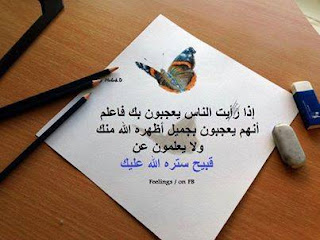 Hadeel.D
إذا رأيت الناس يعجبون بك فاعلم
أنهم يعجبون بجميل أظهره الله منك
ولا يعلمون عن
قبيح ستره الله عليك
Feelings / on FB